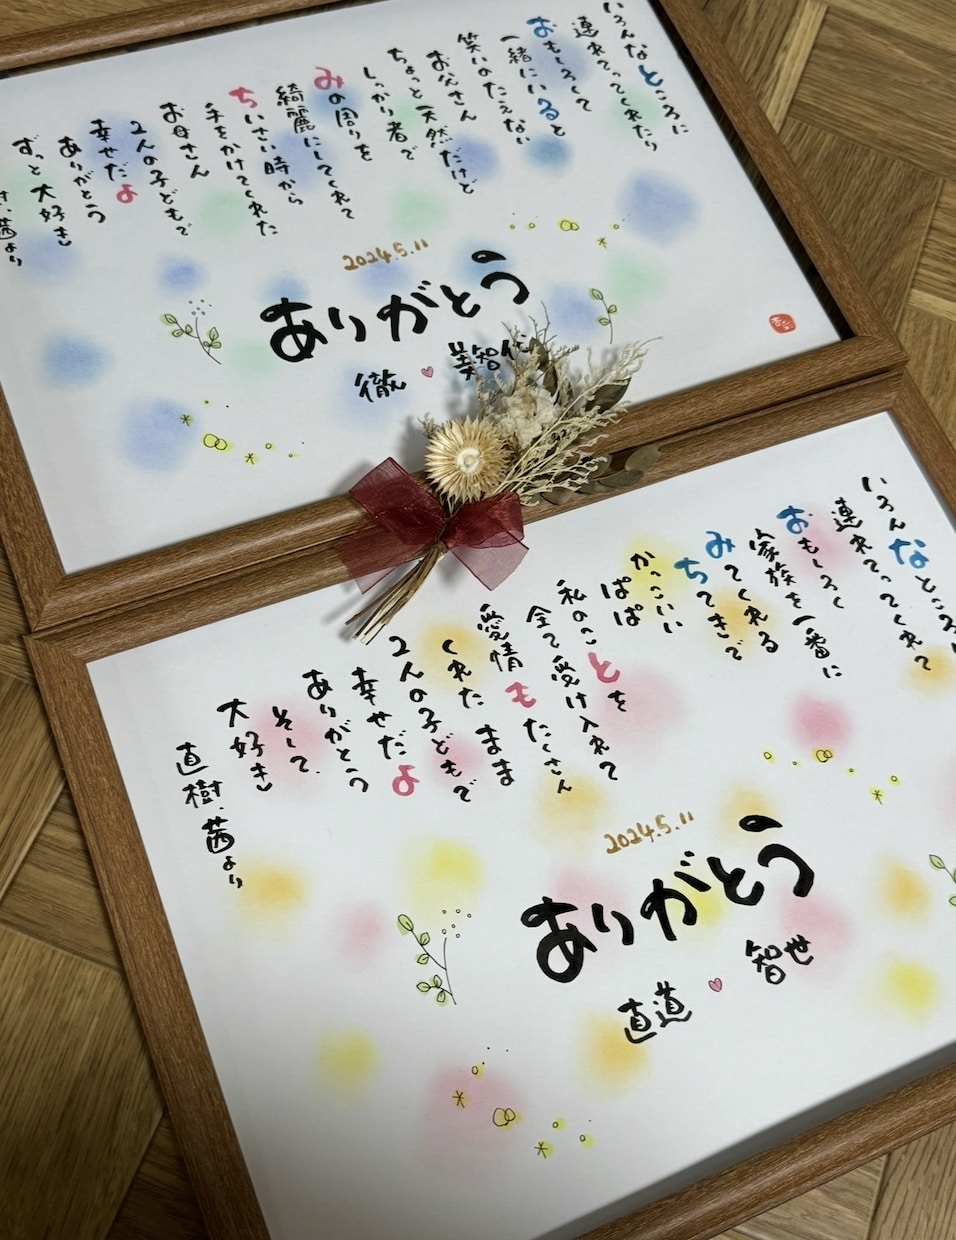 いろんなところに
連れてってくれたり
おもしろくて
一緒にいると
笑いのたえない
お父さん
ちょっと天然だけど
しっかり者で
みの周りを
綺麗にしてくれて
ちいさい時から
手をかけてくれた
お母さん
2人の子どもで
幸せだよ
ありがとう
ずっと大好き
、茜より
2024.5.11
ありがとう
徹♥美智代
いろんなところ
連れてってくれて
おもしろく
家族を一番に
みてくれる
ちてきで
かっこいい
ぱぱ
私のことを
全て受け入れて
愛情もたくさん
くれたまま
2人の子どもで
幸せだよ
ありがとう
そして、
大好き
直樹、茜より
2024.5.11
ありがとう
直道♥智世